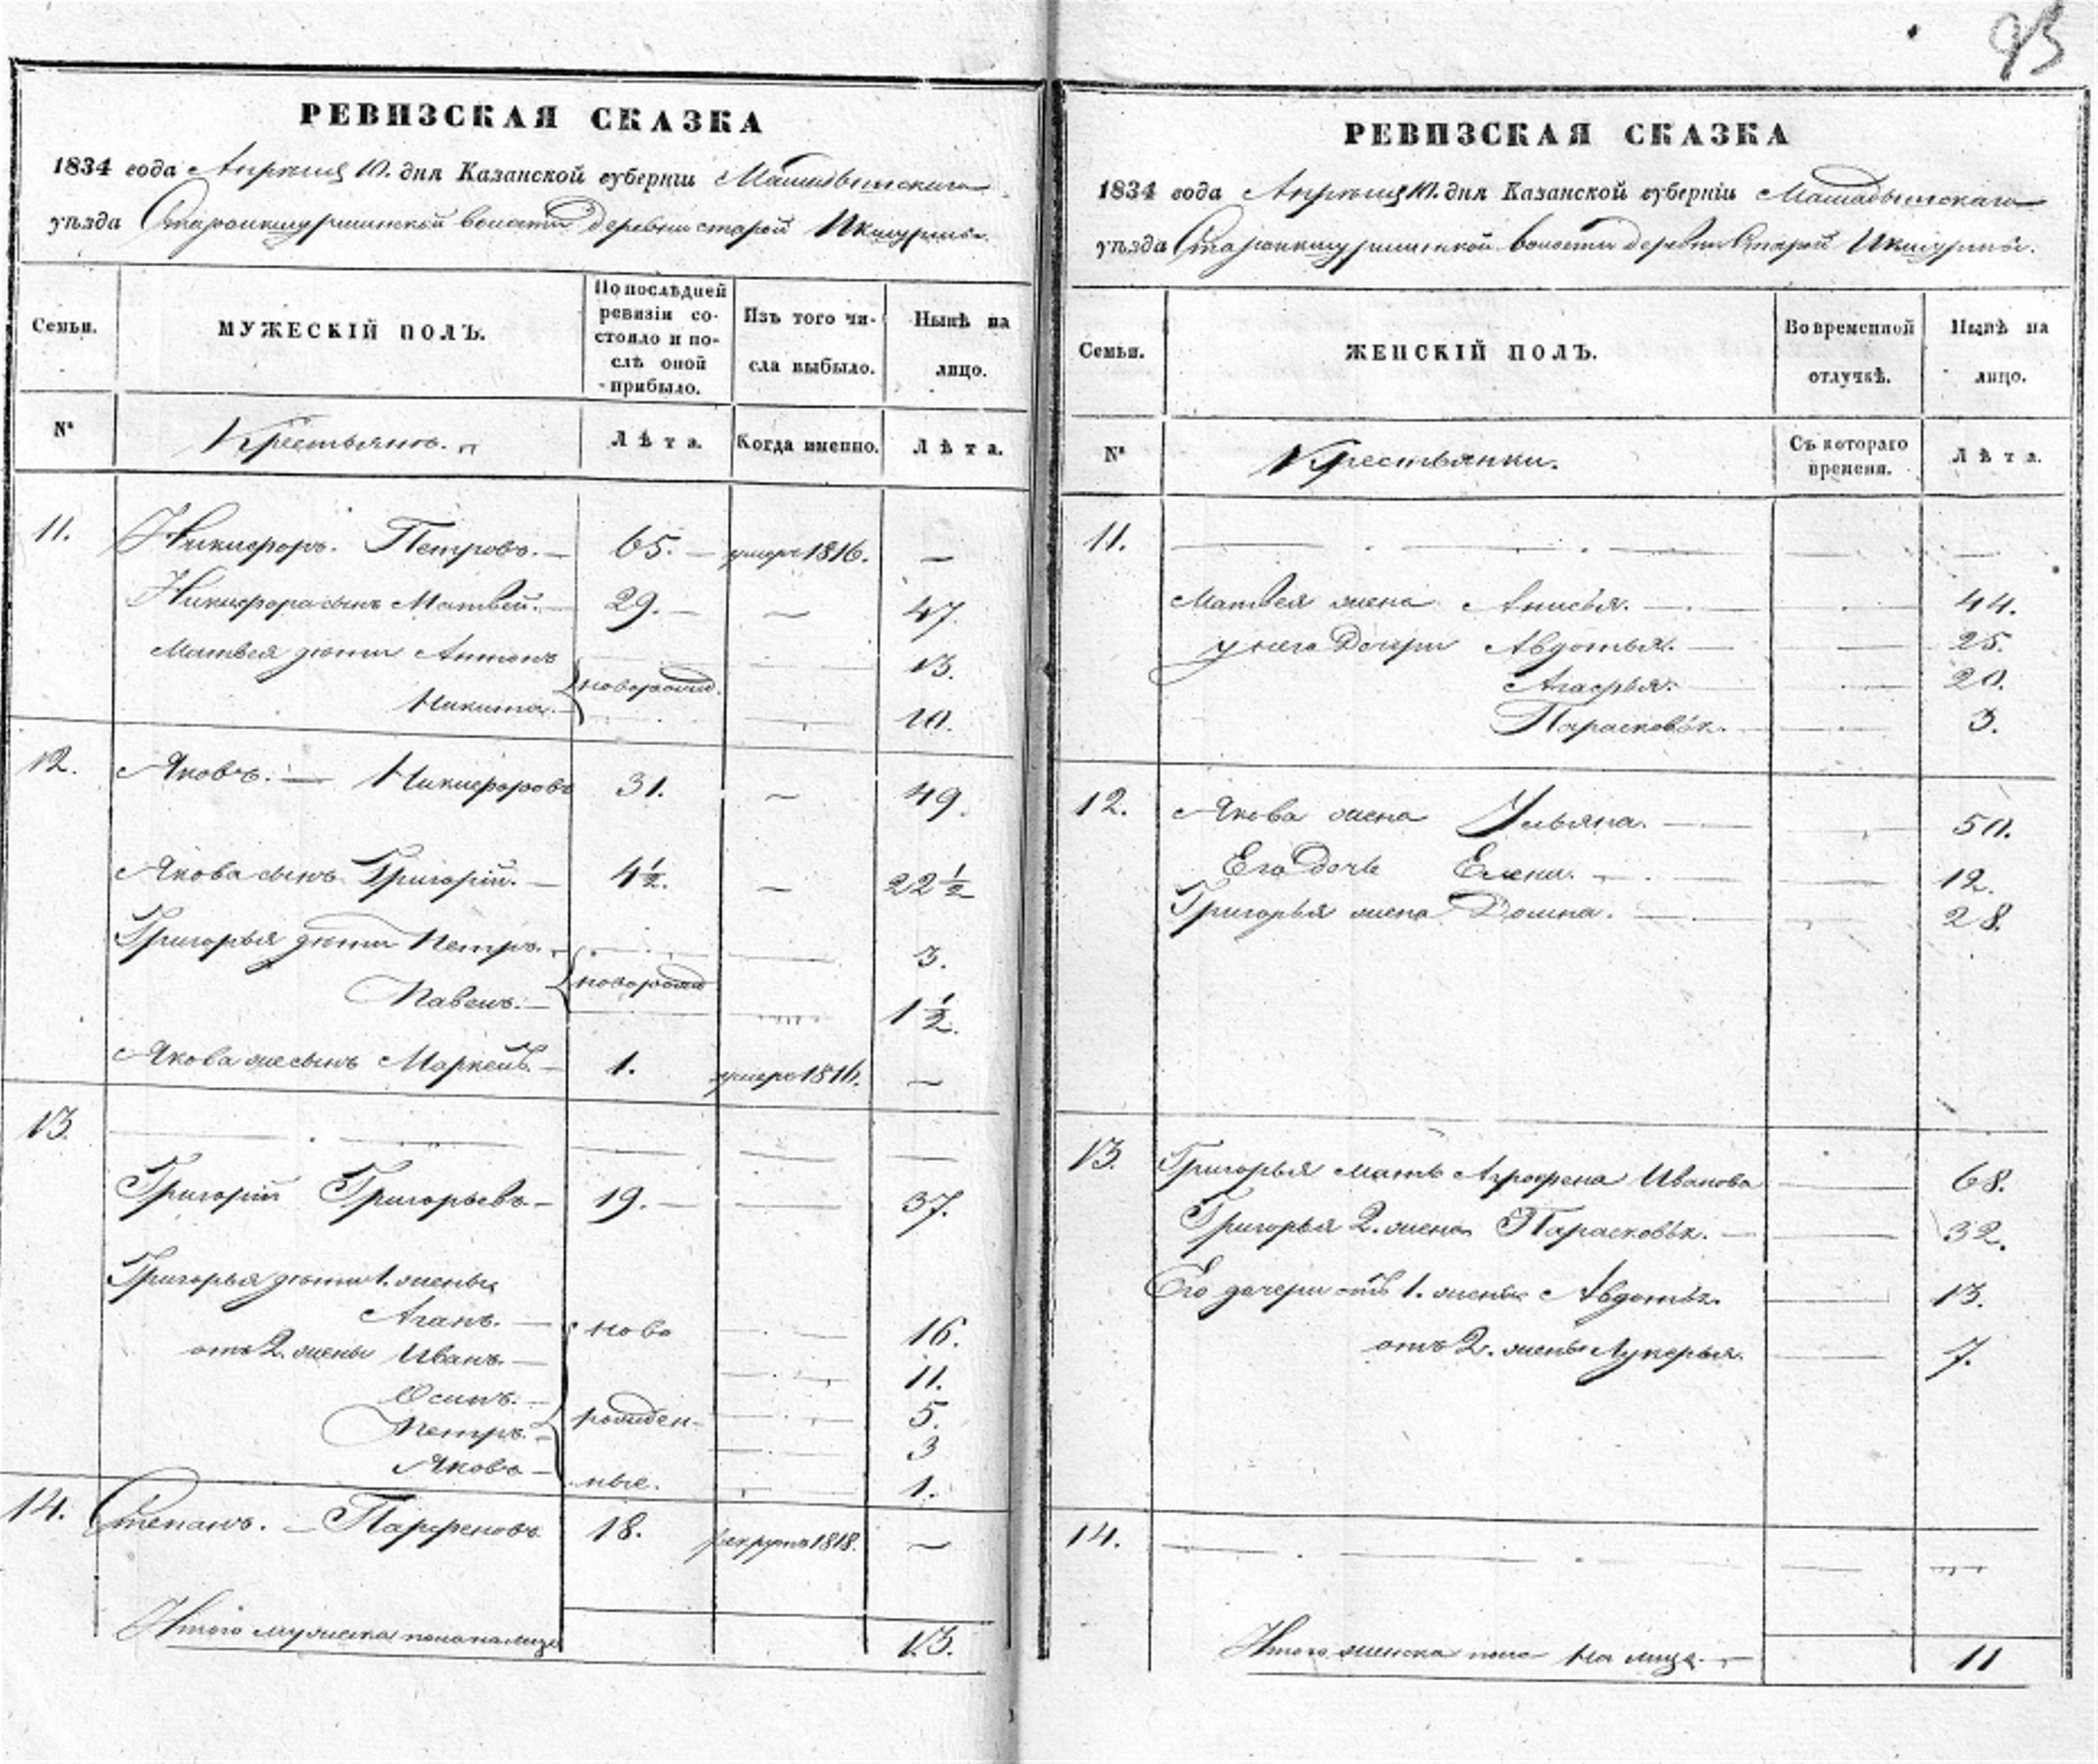 93
РЕВИЗСКАЯ СКАЗКА
1834 года Апреля 10. дня Казанской губерніи Мамадышскаго
уѣзда Староикшурминской волости деревни старой Икшурмы.
Семьи.
МУЖЕСКІЙ ПОЛЪ.
По послѣдней ревизіи состояло и послѣ оной прибыло.
Изъ того числа выбыло.
Нынѣ на лицо.
№
Крестьянъ.
Лѣта.
Когда именно.
Лѣта.
11. Никифоръ. Петровъ. — 65. — умеръ 1816. —
Никифора сынъ Матвей. — 29. — — 47.
Матвея дѣти Антонъ 13.
Никита. — новорожд. 10.
12. Яковъ. — Никифоровъ 31. — 49.
Якова сынъ Григорій. — 4½. — 22½
Григорья дѣти Петръ. — 3.
Павелъ. — новорожд 1½.
Якова же сынъ Маркелъ — 1. умеръ 1816. —
13.
Григорій Григорьевъ — 19. — — 37.
Григорья дѣти 1. жены
Аганъ. — ново 16.
отъ 2. жены Иванъ. — 11.
Осипъ. — 5.
Петръ. — рожден- 3
Яковъ — ные. 1.
14. Степанъ. — Парфеновъ 18. рекрутъ 1818. —
Итого мужеска пола на лицо 13.
РЕВИЗСКАЯ СКАЗКА
1834 года Апреля 10. дня Казанской губерніи Мамадышскаго
уѣзда Староикшурминской волости деревни Старой Икшурмы.
Семьи.
ЖЕНСКІЙ ПОЛЪ.
Во временной отлучкѣ.
Нынѣ на лицо.
№
Крестьянки.
Съ котораго времени.
Лѣта.
11.
Матвея жена Анисья. — 44.
у него дочери Авдотья. — 25.
Агафья. 20.
Парасковья. 3.
12. Якова жена Ульяна. — 50.
Его дочь Елена. 12.
Григорья жена Домна. — 28.
13. Григорья мать Агрофена Иванова — 68.
Григорья 2. жена Парасковья. — 32.
Его дочери отъ 1. жены Авдотья. — 13.
отъ 2. жены Лукерья. — 7.
14.
Итого женска пола на лицо. — 11